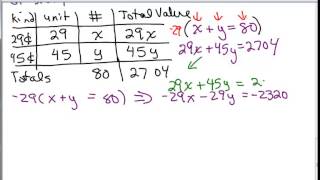 Kind unit # Total Value
29¢ 29 x 29x
45¢ 45 y 45y
Totals 80 2704
-29(x + y = 80)
29x + 45y = 2704
29x + 45y = 2
-29(x + y = 80) ⇒ -29x - 29y = -2320